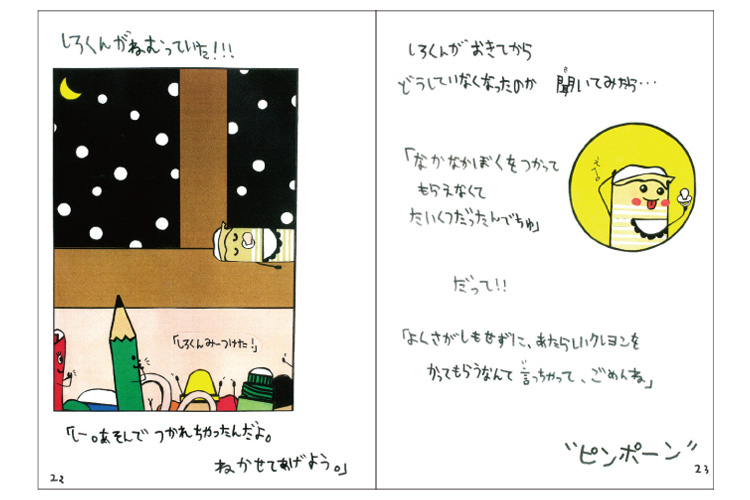 しろくんがねむっていた!!!
「しろくんみーつけた!」
「しー。あそんで つかれちゃったんだよ。
ねかせてあげよう。」
22
しろくんが おきてから
どうしていなくなったのか 聞いてみたら…
き
「なかなかぼくをつかって
もらえなくて
たいくつだったんでちゅ」
だって!!
「よくさがしもせずに、あたらしいクレヨンを
い
かってもらうなんて 言っちゃって、ごめんね」
"ピンポーン"
23